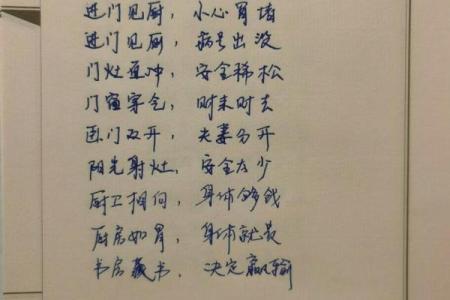 进门见厨，小心胃堵
进门见厕，病号出没
门灶直冲，安全稀松
门窗穿仓，财来财去
卧门双开，夫妻分开
阳光射灶，安全太少
厨卫相向，身体够呛
厨房如胃，身体就是
书房藏书，决定赢输